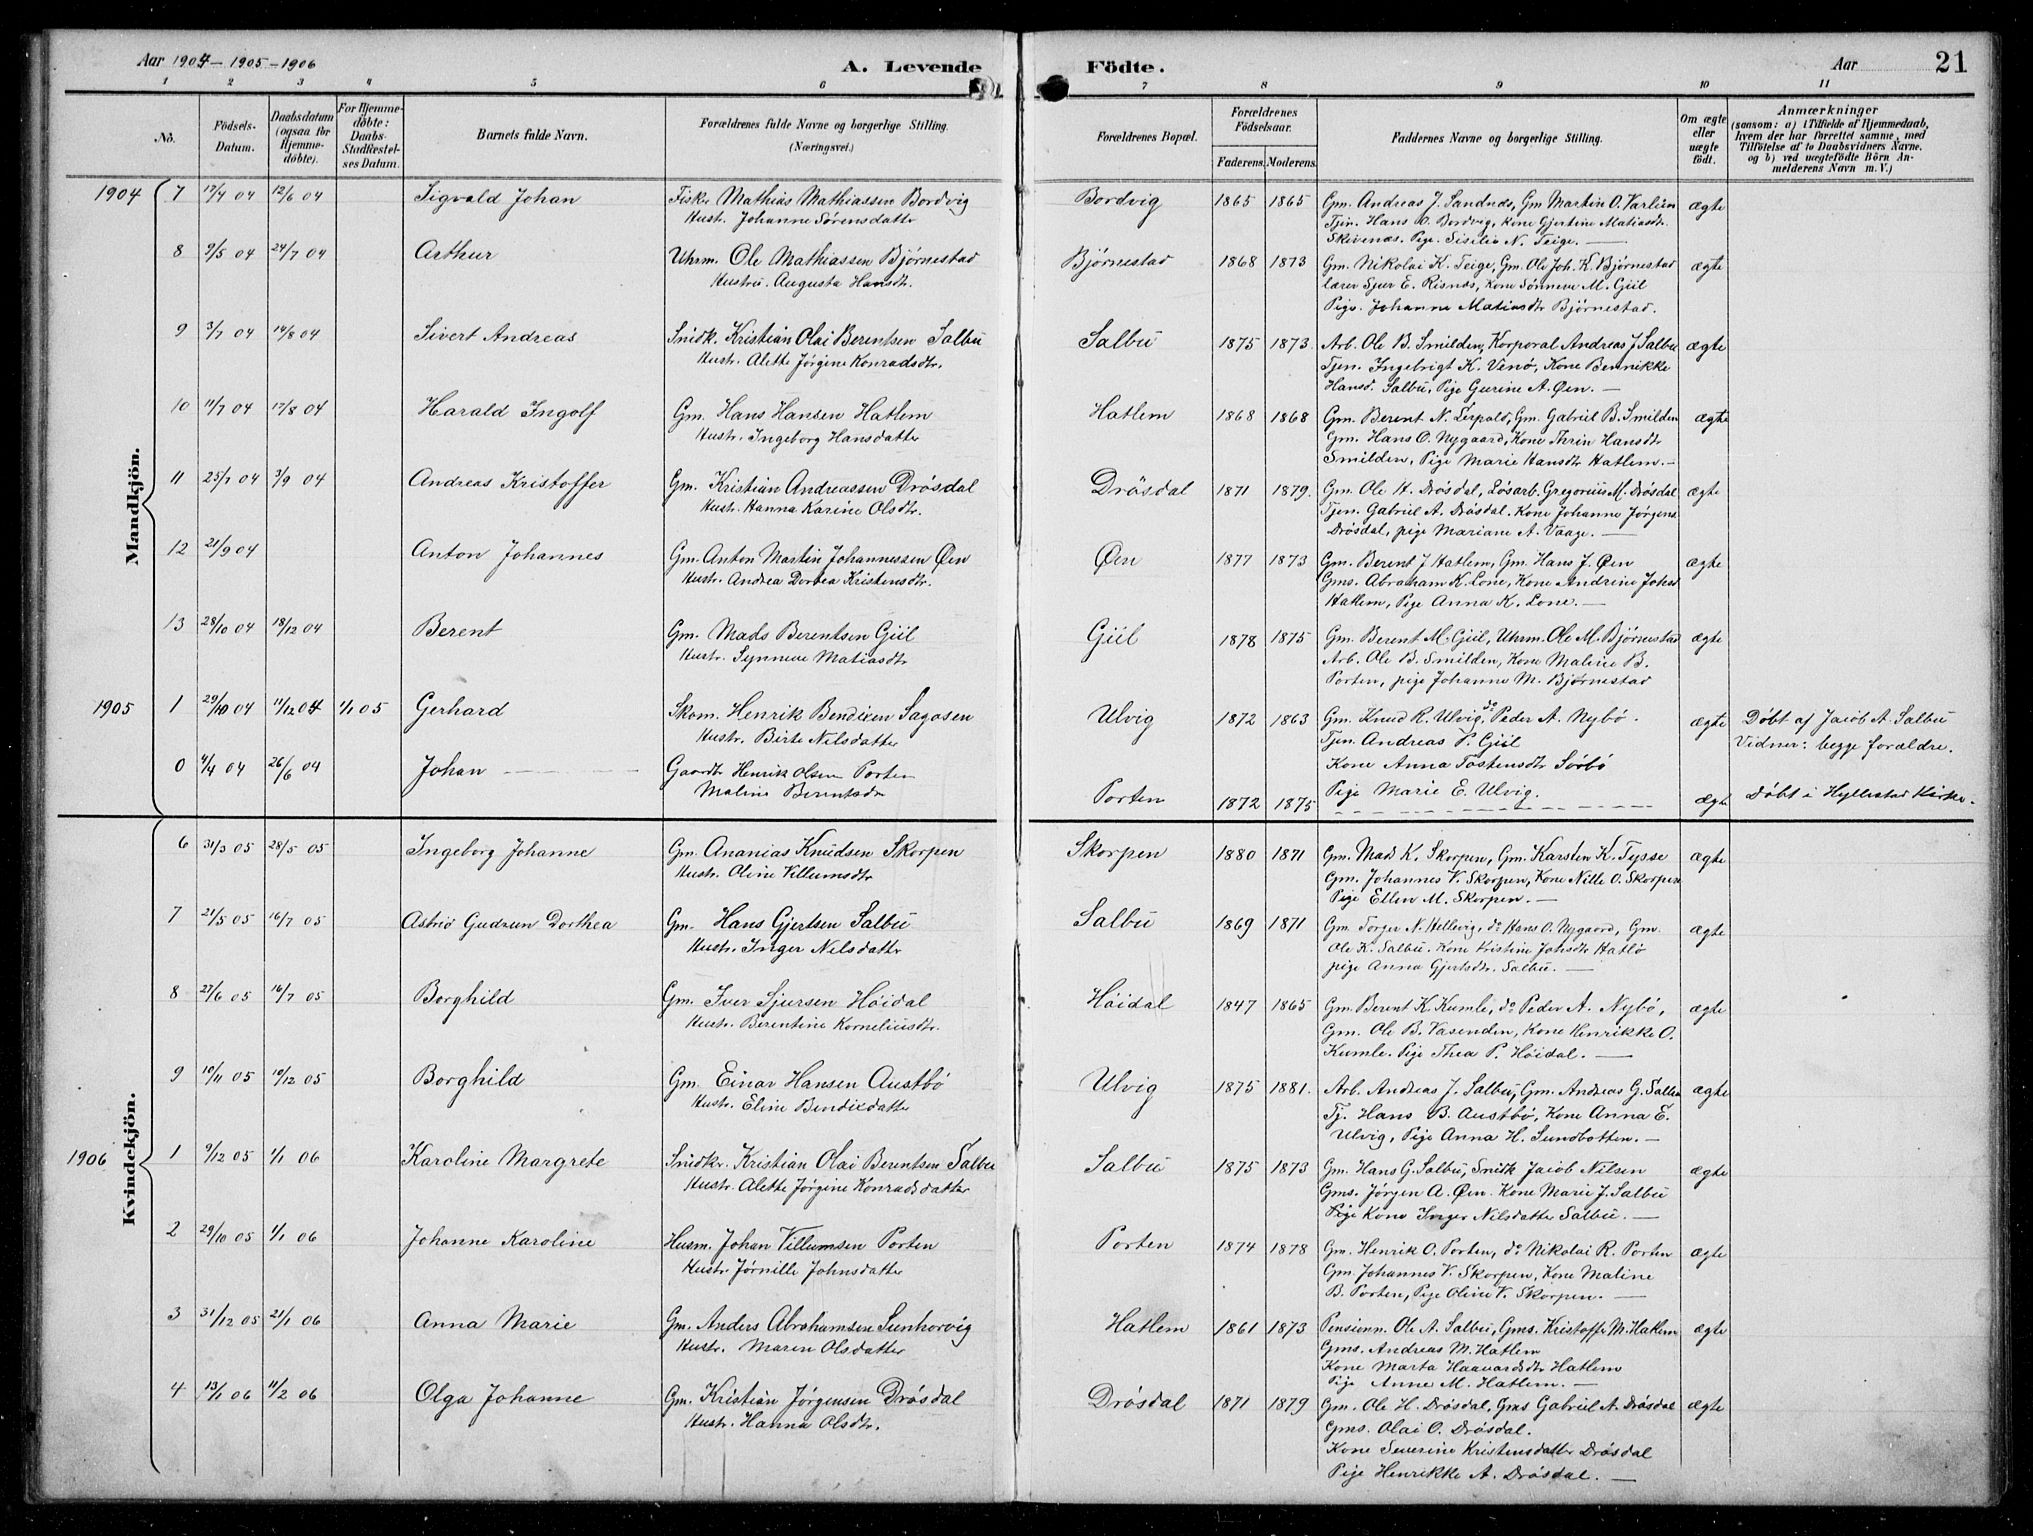 Aar 1904 - 1905 - 1906
A. Levende
Födte.
Aar
21
1 2 3 4 5 6 7 8 9 10 11
No.
Födsels-
Datum.
Daabsdatum
(ogsaa for
Hjemme-
døbte).
For Hjemme-
døbte:
Daabs-
Stadfæstel-
ses Datum.
Barnets fulde Navn.
Forældrenes fulde Navne og borgerlige Stilling.
(Næringsvei.)
Forældrenes Bopæl.
Forældrenes
Födselsaar.
Faderens. Moderens.
Faddernes Navne og borgerlige Stilling.
Om ægte
eller
uægte
født.
Anmærkninger
(saasom: a) i Tilfælde af Hjemmedaab,
hvem der har forrettet samme, med
Tilföielse af to Daabsvidners Navne.
og b) ved uægtefödte Börn An-
melderens Navn m. V.)
Mandkjön.
1904 7 17/4 04 12/6 04 Sigvald Johan Fisker Mathias Mathiassen Bordvig Bordvig 1865 1865 Gm. Andreas J. Sandnæs, Gm Martin O. Varlien ægte
Hust. Johanne Sørensdatter Tjen. Hans O. Bordvig, Kone Gjertine Matiasdt.
Skivenæs. Pige. Sisilie N. Teige. —
8 9/5 04 24/7 04 Arthur Uhrm. Ole Mathiassen Bjørnestad Bjørnestad 1868 1873 Gm. Nikolai K. Teige, Gm. Ole Joh. K. Bjørnestad ægte
Hustru. Augusta Hansdt. lærer Sjur E. Risnæs, Kone Sønneve M. Giil
Pige. Johanna Matiasdtr Bjørnestad.
9 3/7 04 14/8 04 Sivert Andreas Snidk. Kristian Olai Berentsen Salbu Salbu 1875 1873. Arb. Ole B. Smilden, Korporal Andreas J Salbu ægte
Hustr. Alette Jørgine Konradsdtr. Tjen. Ingebrigt K. Venø, Kone Bennikke
Hansd. Salbu, Pige Gurine A. Øen. —
10 11/7 04 17/8 04 Harald Ingolf Gm. Hans Hansen Hatlem Hatlem 1868 1868 Gm. Berent N. Leipald, Gm. Gabriel B. Smilden ægte
Hustr. Ingeborg Hansdatter Gm. Hans O. Nygaard, Kone Thrin Hansdtr
Smilden, Pige Marie Hansdtr Hatlem. —
11 25/7 04 3/9 04 Andreas Kristoffer Gm. Kristian Andreassen Drøsdal Drøsdal 1871 1879. Gm. Ole H. Drøsdal, Løsarb. Gregorius M. Drøsdal ægte
Hustr. Hanna Karine Olsdtr. Tjen. Gabriel A. Drøsdal. Kone Johanne Jørgens
Drøsdal, pige Mariane A. Vaage. —
12 21/9 04 Anton Johannes Gm. Anton Martin Johannessen Øen Øen 1877 1873 Gm. Berent J Hatlem, Gm. Hans J. Øen ægte
Hustr. Andrea Dortea Kristensdtr. Gms. Abraham K. Lone, Kone Andrine Johs
Hatlem, Pige Anna K. Lone. —
13 28/10 04 18/12 04 Berent Gm. Mads Berentsen Giil Giil 1878 1875 Gm. Berent M. Giil, Uhrm. Ole M. Bjørnestad ægte
Hustr. Synneve Matiasdtr Arb. Ole B. Smilden, Kone Maline B.
Porten, pige Johanne M. Bjørnestad
1905 1 29/10 04 11/12 04 1/1 05 Gerhard Skom. Henrik Bendixen Sagosen Ulvig 1872 1863 Gm. Knud R. Ulvig, do Peder A. Nybø. ægte Døbt af Jacob A. Salbu
Hustr. Birte Nilsdatter Tjen. Andreas P. Giil Vidner: begge forældre.
Kone Anna Tostensdtr Sørbø
Pige Marie E. Ulvig.
0 4/4 04 26/6 04 Johan Gaardbr Henrik Olsen Porten Porten 1872 1875 ægte Døbt i Hyllestad Kirke.
Maline Berentsdr
Kvindekjön.
6 31/3 05 28/5 05 Ingeborg Johanne Gm. Ananias Knudsen Skorpen Skorpen 1880 1871 Gm. Mad K. Skorpen, Gm. Karsten K. Tysse ægte
Hustr. Oline Villumsdtr Gm. Johannes V. Skorpen, Kone Nille O. Skorpen
Pige Ellen M. Skorpen. —
7 21/5 05 16/7 05 Astrid Gudrun Dorthea Gm. Hans Gjertsen Salbu Salbu 1869 1871 Gm. Torger N. Hellevig, do Hans O. Nygaard, Gm. ægte
Hustr. Inger Nilsdatter Ole K. Salbu. Kone Kristine Johsdtr Hatlø
pige Anna Gjertsdtr. Salbu. —
8 27/6 05 16/7 05 Borghild Gm. Iver Sjursen Høidal Høidal 1847 1865 Gm. Berent K. Kumle, do Peder A. Nybø, ægte
Hustr. Berentine Korneliusdtr. Gm. Ole B. Vasenden, Kone Henrikke O.
Kumle. Pige Thea P. Høidal. —
9 19/11 05 19/12 05 Borghild Gm. Einar Hansen Austbø Ulvig 1875 1881. Arb. Andreas J. Salbu, Gm. Andreas G. Salbu ægte
Hustr. Eline Bendixdatter Tj. Hans B. Austbø, Kone Anna E.
Ulvig, Pige Anna H. Sundbotten. —
1906 1 9/12 05 1/1 06 Karoline Margrete Snidkr. Kristian Olai Berentsen Salbu Salbu 1875 1873 Gm. Hans G. Salbu, Snidk Jacob Nilsen ægte
Hustr. Alette Jørgine Konradsdatter Gms. Jørgen A. Øen. Kone Marie J. Salbu
Pige Kone Inger Nilsdatter Salbu. —
2 29/10 05 1/1 06 Johanne Karoline Husm. Johan Villumsen Porten Porten 1874 1878 Gm. Henrik O. Porten, do Nikolai R. Porten ægte
Hustr Jørnille Johnsdatter Gm. Johannes V. Skorpen, Kone Maline
B. Porten, Pige Oline V. Skorpen. —
3 31/12 05 21/1 06 Anna Marie Gm. Anders Abrahamsen Sunhorvig Hatlem 1861 1873 Pensionn. Ole A. Salbu, Gms. Kristoffer M. Hatlem ægte
Hustr. Maren Olsdatter Gms. Andreas M. Hatlem
Kone Marta Haavardsdtr Hatlem
Pige Anne M. Hatlem. —
4 13/1 06 11/2 06 Olga Johanne Gm. Kristian Jørgensen Drøsdal Drøsdal 1871 1879 Gm. Ole H. Drøsdal, Gms Gabriel A. Drøsdal ægte
Hustr. Hanna Olsdtr. Gms. Olai O. Drøsdal.
Kone Severine Kristensdatter Drøsdal
Pige Henrikke A. Drøsdal. —